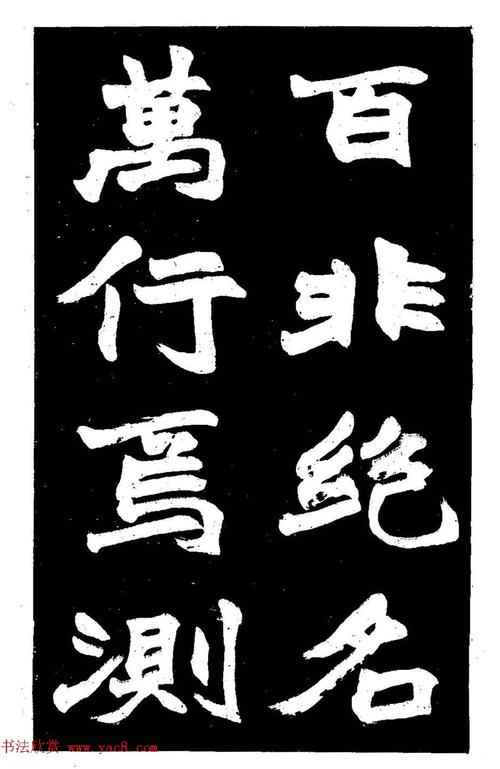 百非絕名
萬行焉測
书法欣赏 www.yac8.com